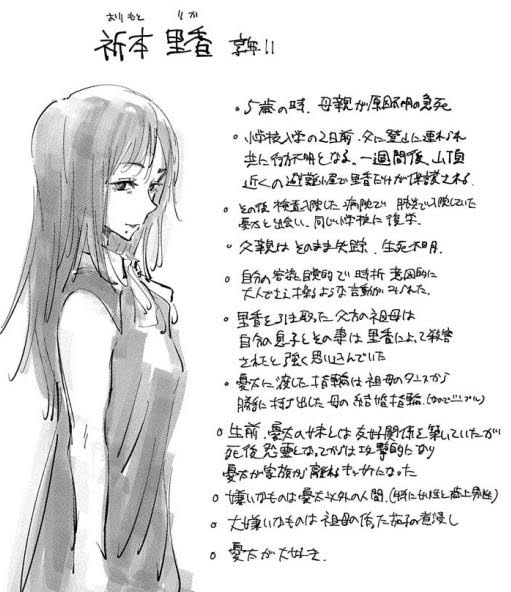 おりもと りか
祈本 里香 享年11
○5歳の時、母親が原因不明の急死
○小学校入学の2日前、父に登山に連れられ
共に行方不明となる。一週間後、山頂
近くの避難小屋で里香だけが保護される。
○その後 検査入院した病院で 肺炎で入院していた
憂太と出会い、同じ小学校に復学。
○父親はそのまま失踪、生死不明。
○自分の容姿に自覚的で 時折 意図的に
大人でさえ操るような言動がみられた。
○里香を引き取った父方の祖母は
自分の息子とその妻は里香によって殺害
されたと強く思い込んでいた
○憂太に渡した指輪は祖母のタンスから
勝手に持ち出した母の結婚指輪。
○生前、憂太の妹とは友好関係を築いていたが
死後怨霊となってからは攻撃的になり
憂太が家族から離れるきっかけになった
○嫌いなものは憂太以外の人間。(特に女性と歳上男性)
○大嫌いなものは祖母の作った茄子の煮浸し
○憂太が大好き。